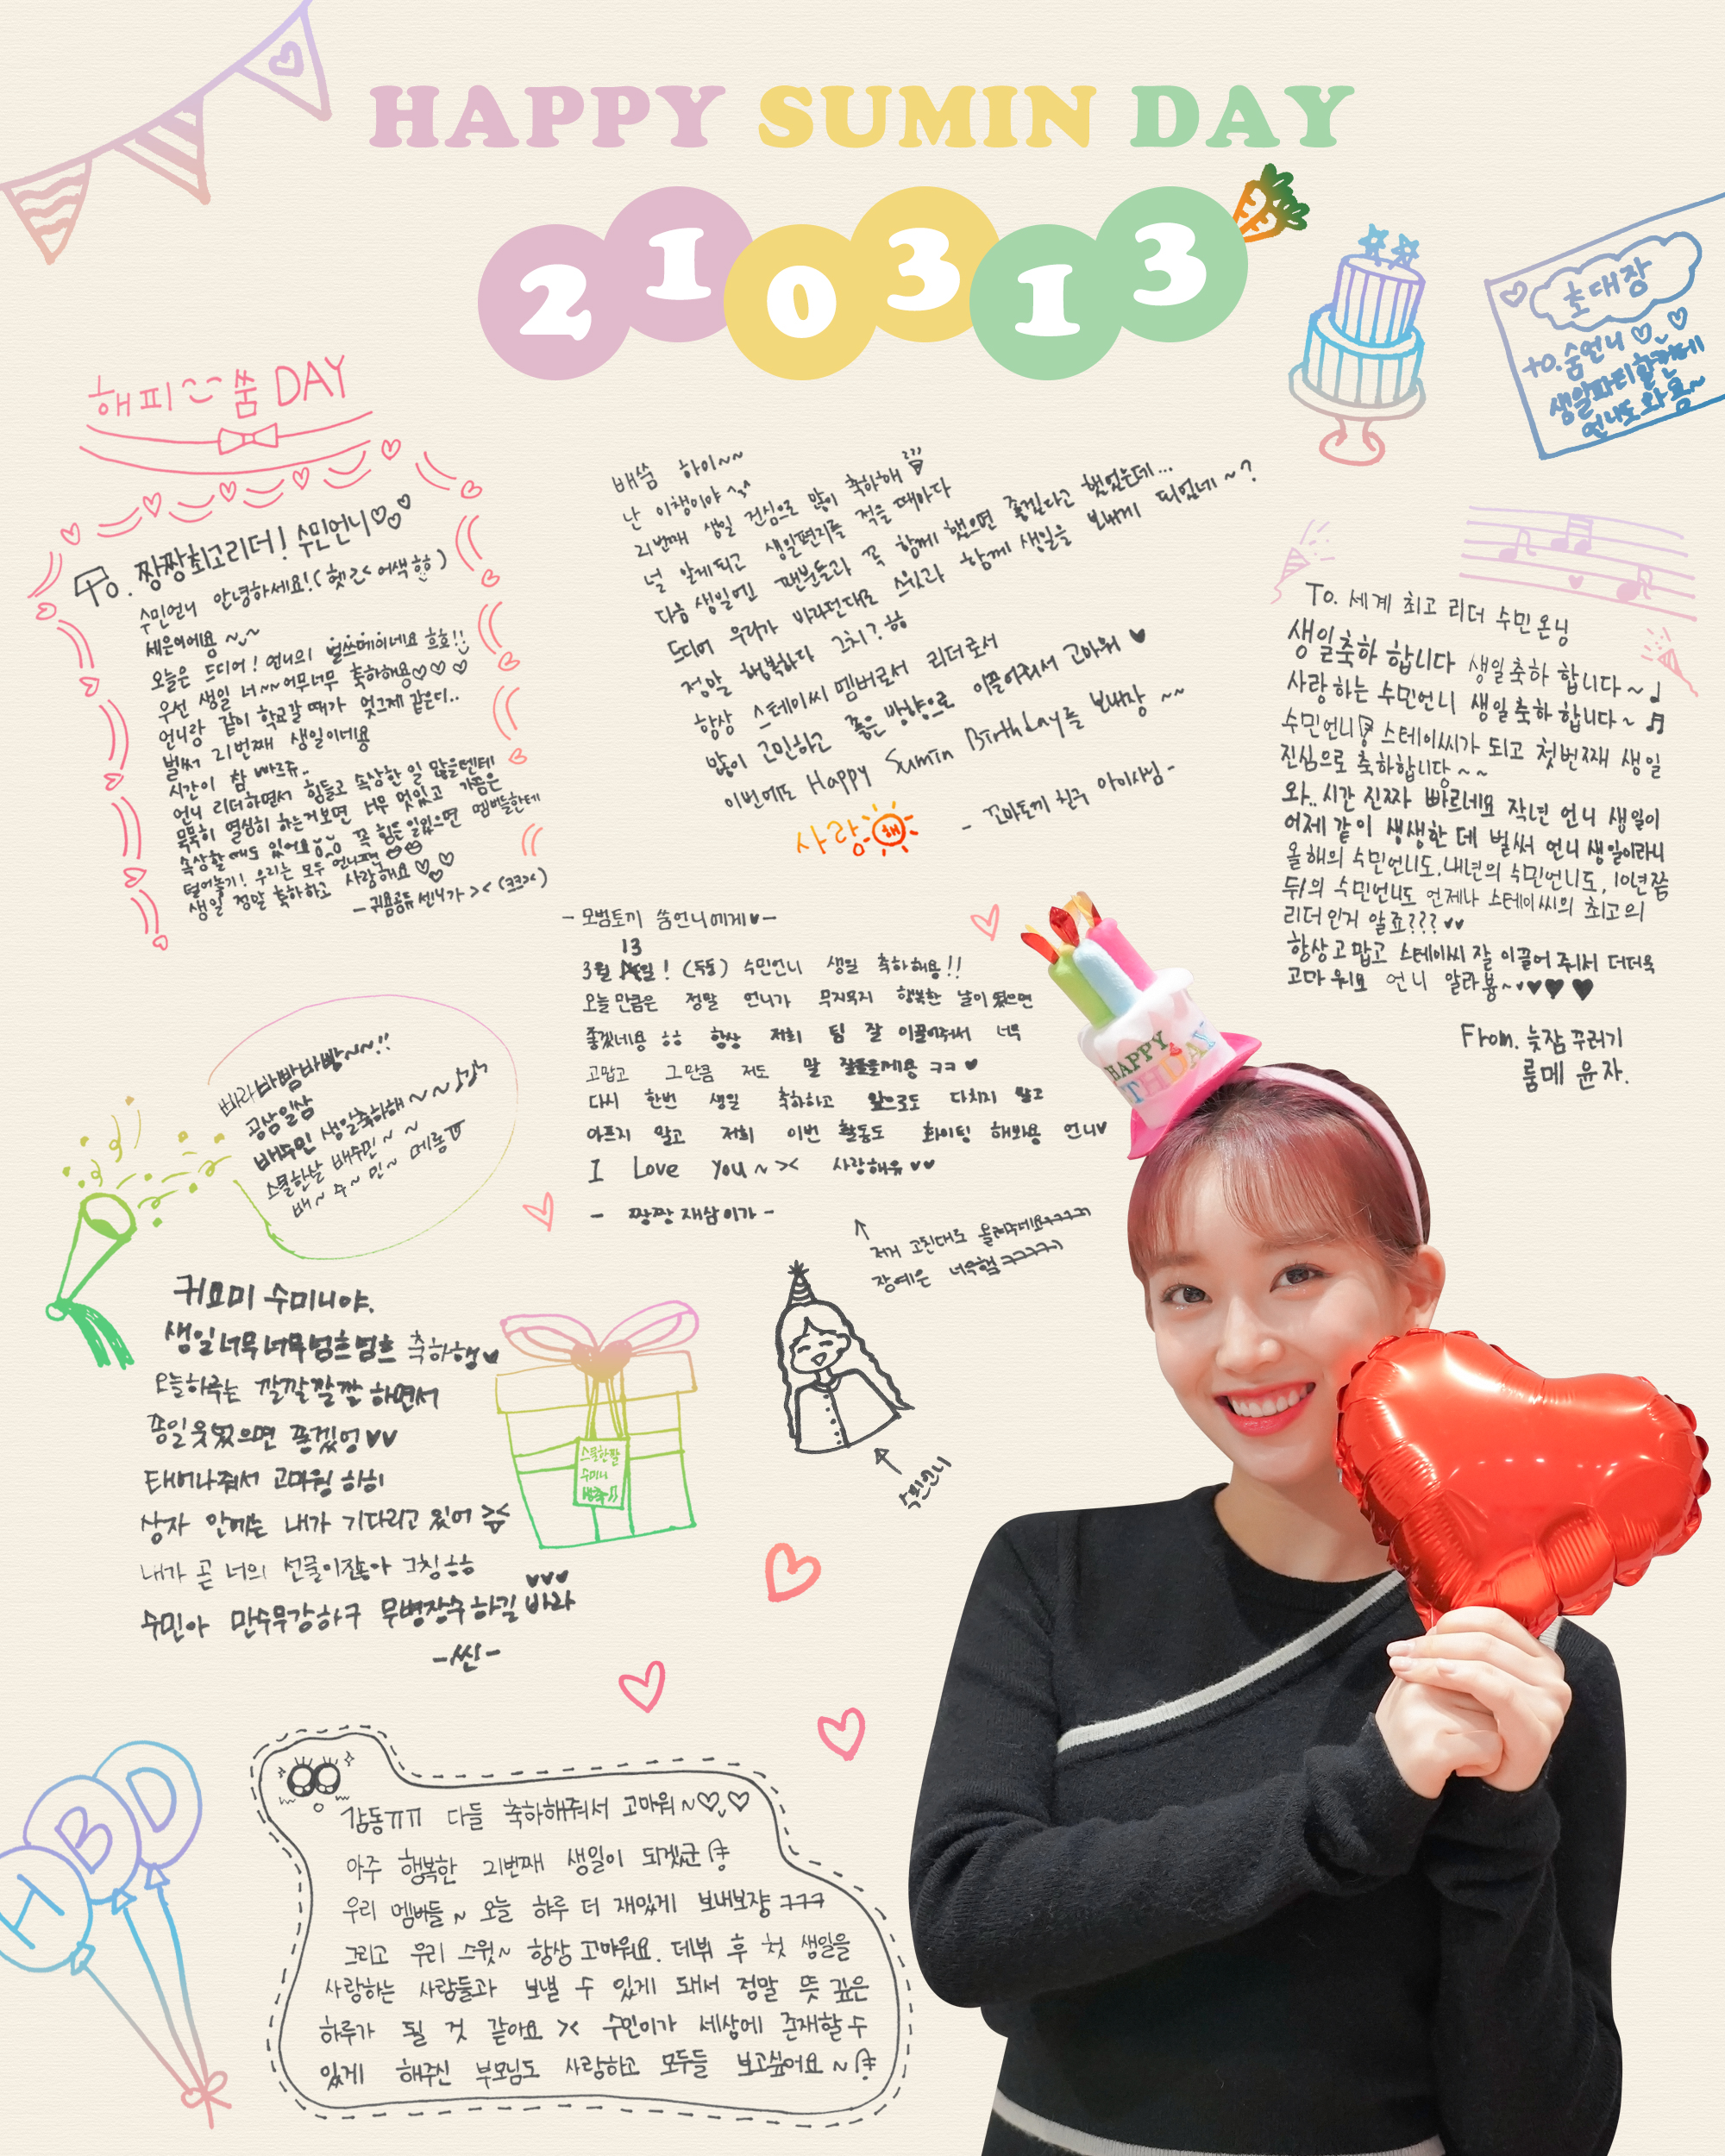 HAPPY SUMIN DAY
210313
초대장
to. 숨언니♡♡
생일파티할건데
언니도와용~
해피 쑴 DAY
To. 짱짱최고리더! 수민언니♡♡♡
수민언니 안녕하세요!(헷ㄹ< 어색ㅎㅎ)
세은이에용 ~~
오늘은 드디어! 언니의 벌쓰데이네요 흐흐!!
우선 생일 너~~어무너무 축하해용♡♡♡
언니랑 같이 학교갈 때가 엊그제 같은데..
벌써 21번째 생일이네용
시간이 참 빠르쥬..
언니 리더하면서 힘들고 속상한 일 많을텐데
묵묵히 열심히 하는거보면 너무 멋있고 가끔은
속상할 때도 있어요 꼭 힘든일있으면 멤버들한테
털어놓기! 우리는 모두 언니편
생일 정말 축하하고 사랑해요♡♡
-귀욤공듀 센니가 >< (ㅋㅋ><)
배쑴 하이~~
난 이챙이야 ^^
21번째 생일 진심으로 많이 축하해
널 알게되고 생일편지를 적을 때마다
다음 생일엔 팬분들과 꼭 함께 했으면 좋겠다고 했었는데...
드디어 우리가 바라던대로 스윗과 함께 생일을 보내게 되었네~?
정말 행복하다 그치?ㅎㅎ
항상 스테이씨 멤버로서 리더로서
많이 고민하고 좋은 방향으로 이끌어줘서 고마워♥
이번에도 Happy Sumin Birthday를 보내장 ~~
사랑해
- 꼬마토끼 친구 아이사님-
To. 세계 최고 리더 수민온닝
생일축하 합니다 생일축하 합니다~♩
사랑하는 수민언니 생일축하합니다~♬
수민언니!! 스테이씨가 되고 첫번째 생일
진심으로 축하합니당~~
와.. 시간 진짜 빠르네요 작년 언니 생일이
어제 같이 생생한 데 벌써 언니 생일이라니
올해의 수민언니도, 내년의 수민언니도, 10년쯤
뒤의 수민언니도 언제나 스테이씨의 최고의
리더인거 알죠???♥♥
항상고맙고 스테이씨 잘 이끌어 줘서 더더욱
고마워요 언니 알라븅~♥♥♥♥
From. 늦잠꾸러기
룸메 윤자.
-모범토끼 쑴언니에게♥-
13
3월 일! (두둥) 수민언니 생일 축하해용!!
오늘 만큼은 정말 언니가 무지무지 행복한 날이 됐으면
좋겠네용 ㅎㅎ 항상 저희 팀 잘 이끌어줘서 너무
고맙고 그만큼 저도 말 잘들을게용 ㅋㅋ♥
다시 한번 생일 축하하고 앞으로도 다치지 말고
아프지 말고 저희 이번 활동도 화이팅 해봐용 언니♥
I Love you~>< 사랑해유♥♥
- 짱짱 재삼이가 -
↑
저거 고친대로 올려주네요ㅋㅋㅋㅋ
장예은 너무햄ㅋㅋㅋㅋ
빠라바밤바빵~~!!
공삼일삼
배수민 생일축하해~~♪♪
스뭘한살 배수민~~
배~수~민~ 메롱ㅠ
귀요미 수미니야.
생일너무너무넘흐넘흐 축하행♥
오늘하루는 깔깔깔깔 하면서
종일웃었으면 좋겠엉♥♥
태어나줘서 고마웡 히히
상자 안에는 내가 기다리고 있어
내가 곧 너의 선물이잖아 그칭ㅎㅎ
수민아 만수무강하구 무병장수하길 바라♥♥♥
-씬-
스물한짤
수미니
생축!!
수민언니
HBD
감동ㅠㅠ 다들 축하해줘서 고마워~♡♡
아주 행복한 21번째 생일이 되겠군
우리 멤버들~ 오늘 하루 더 재밌게 보내보쟝 ㅋㅋㅋ
그리고 우리 스윗~ 항상 고마워요. 데뷔 후 첫 생일을
사랑하는 사람들과 보낼 수 있게 돼서 정말 뜻 깊은
하루가 될 것 같아요 >< 수민이가 세상에 존재할 수
있게 해주신 부모님도 사랑하고 모두들 보고싶어요~
HAPPY